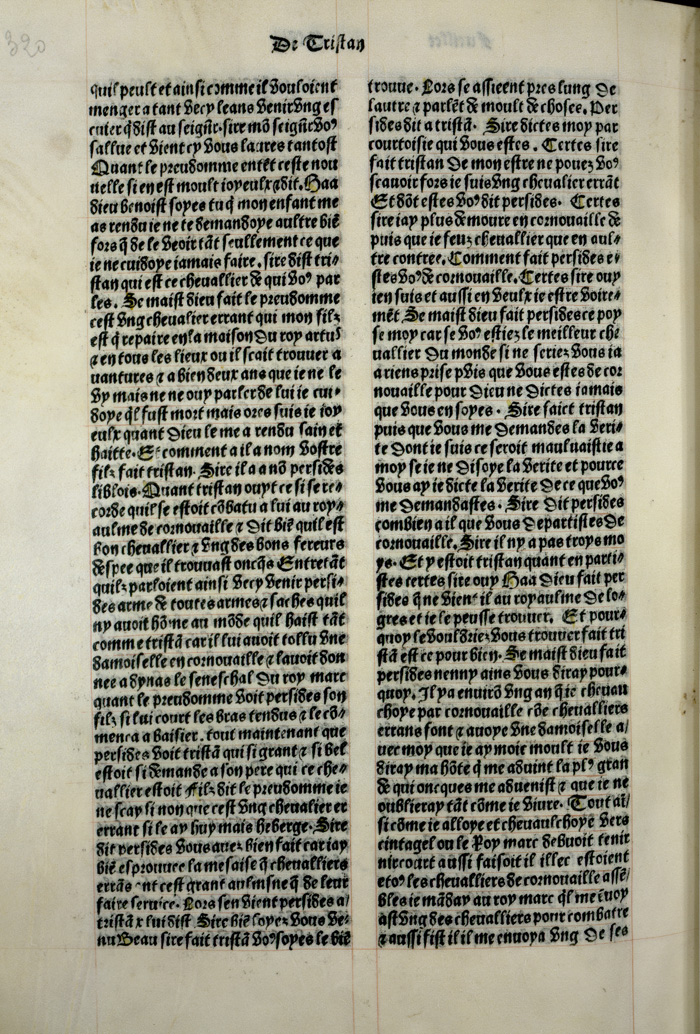 320
De Tristan
quil peult et ainsi comme il vouloient
menger atant vecy leans venir vng es
cuier q̄ dist au seigñr. sire mō seigñr voꝰ
sallue et vient cy vous la: res tantost
Quant le preudomme entēt ceste nou
uelle si en est moult ioyeulx ⁊ dit. Haa
dieu benoist soyes tu q̄ mon enfant me
as rendu ie ne te demandoye aultre biē
fors q̄ de le veoir tāt seullement ce que
ie ne cuidoye iamais faire. sire dist tri-
stan qui est ce cheuallier de qui voꝰ par
les. Se maist dieu fait le preudomme
cest vng cheualier errant qui mon filz
est q̄ repaire en la maison du roy artus
⁊ en tous les lieux ou il scait trouuer a
uantures ⁊ a bien deux ans que ie ne le
vy mais ne ne ouy parler de lui ie cui-
doye ql̄ fust mort mais ores suis ie ioy
eulx quant dieu le me a rendu sain et
haitte. Et comment a il a nom vostre
filz fait tristan. Sire il a a nō persides
liblois. Quant tristan ouyt ce si se re-
corde quil se estoit cōbatu a lui au roy-
aulme de cornouaille ⁊ dit biē quil est
bon cheuallier ⁊ vng des bons fereurs
despee que il trouuast oncq̄s Entretāt
quilz parloient ainsi vecy venir persi-
des arme de toutes armes ⁊ saches quil
ny auoit hōme au mōde quil haist tāt
comme tristā car il lui auoit tollu vne
damoiselle en cornouaille ⁊ lauoit don
nee a dynas le seneschal du roy marc
quant le preudomme voit persides son
filz si lui court les bras tendus ⁊ le cō-
menca a baisier. tout maintenant que
persides voit tristā qui si grant ⁊ si bel
estoit si demande a son pere qui ce che-
uallier estoit Filz dit le preudomme ie
ne scay si non que cest vng cheualier et
errant si le ay huy mais heberge. Sire
dit persides vous auez bien fait car iay
biē esprouue la mesaise q̄ cheualliers
errās ont cest grant aulmsne q̄ de leur
faire seruice. Lors sen vient persides a
tristā ⁊ lui dist Sire biē soyez vous ve-
nu Beau sire fait tristā voꝰ soyes le biē
trouue. Lors se assieent pres lung de
lautre ⁊ parlēt de moult de choses. Per
sides dit a tristā. Sire dictes moy par
courtoisie qui vous estes. Certes sire
fait tristan de mon estre ne pouez voꝰ
scauoir fors ie suis vng cheualier errāt
Et dōt estes voꝰ dit persides. Certes
sire iay plus demoure en cornouaille de
puis que ie feuz cheuallier que en aul-
tre contree. Comment fait persides e-
stes voꝰ de cornouaille. Certes sire ouy
ien suis et aussi en veulx ie estre voire-
mēt. Se maist dieu fait persides ce poy
se moy car se voꝰ estiez le meilleur che
uallier du monde si ne seriez vous ia
a riens prise puis que vous estes de cor
nouaille pour dieu ne dictes iamais
que vous en soyes. Sire faict tristan
puis que vous me demandes la veri-
te dont ie suis ce seroit mauluaistie a
moy se ie ne disoye la verite et pource
vous ay ie dicte la verite de ce que voꝰ
me demandastes. Sire dit persides
combien a il que vous departistes de
cornouaille. Sire il ny a pas troys mo
ys. Et y estoit tristan quant en parti-
stes certes sire ouy Haa dieu fait per
sides q̄ ne vient il au royaulme de lo-
gres et ie le peusse trouuer. Et pour-
quoy le vouldriez vous trouuer fait tri
stā est ce pour bien. Se maist dieu fait
persides nenny ains vous diray pour-
quoy. Il ya enuirō vng an q̄ ie cheuau
choye par cornouaille cōe cheualliers
errans font ⁊ auoye vne damoiselle a-
uec moy que ie aymoie moult ie vous
diray ma hōte q̄ me aduint la plꝰ gran
de qui oncques me aduenist ⁊ que ie ne
oublieray tāt cōme ie viure. Tout ai-
si cōme ie alloye et cheuaulchoye vers
cintagel ou le Roy marc debuoit tenir
sir court aussi faisoit il illec estoient
⁊ toꝰ les cheualliers de cornouaille assē-
bles ie māday au roy marc ql̄ me ēuoy
ast vng des cheualliers pour combatre
⁊ aussi fist il il me enuoya vng de ses